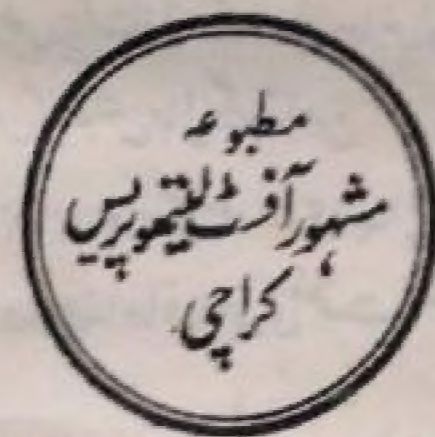 مطبوعہ
مشہور آفسٹ لیتھو پریس،
کراچی